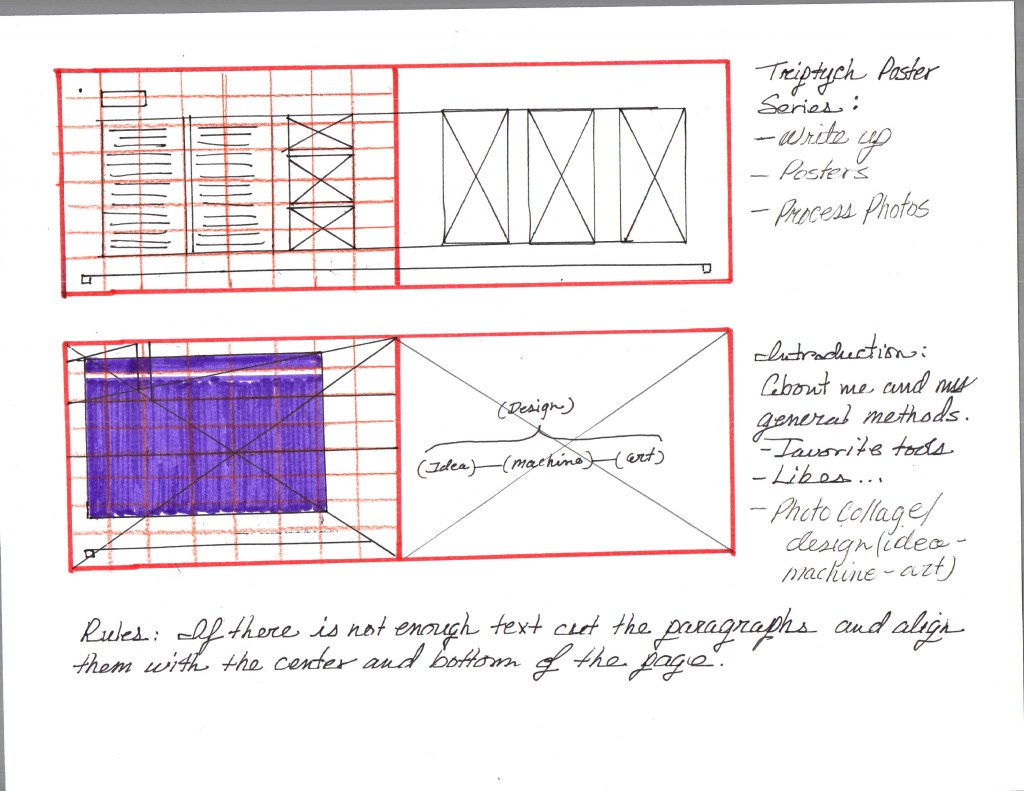 Triptych Poster
Series:
- Write up
- Posters
- Process Photos
(Design)
(Idea)—(machine)—(art)
Introduction:
About me and my
general methods.
- Favorite tools
- Likes...
- Photo Collage/
design (idea-
machine-art)
Rules: If there is not enough text cut the paragraphs and align
them with the center and bottom of the page.